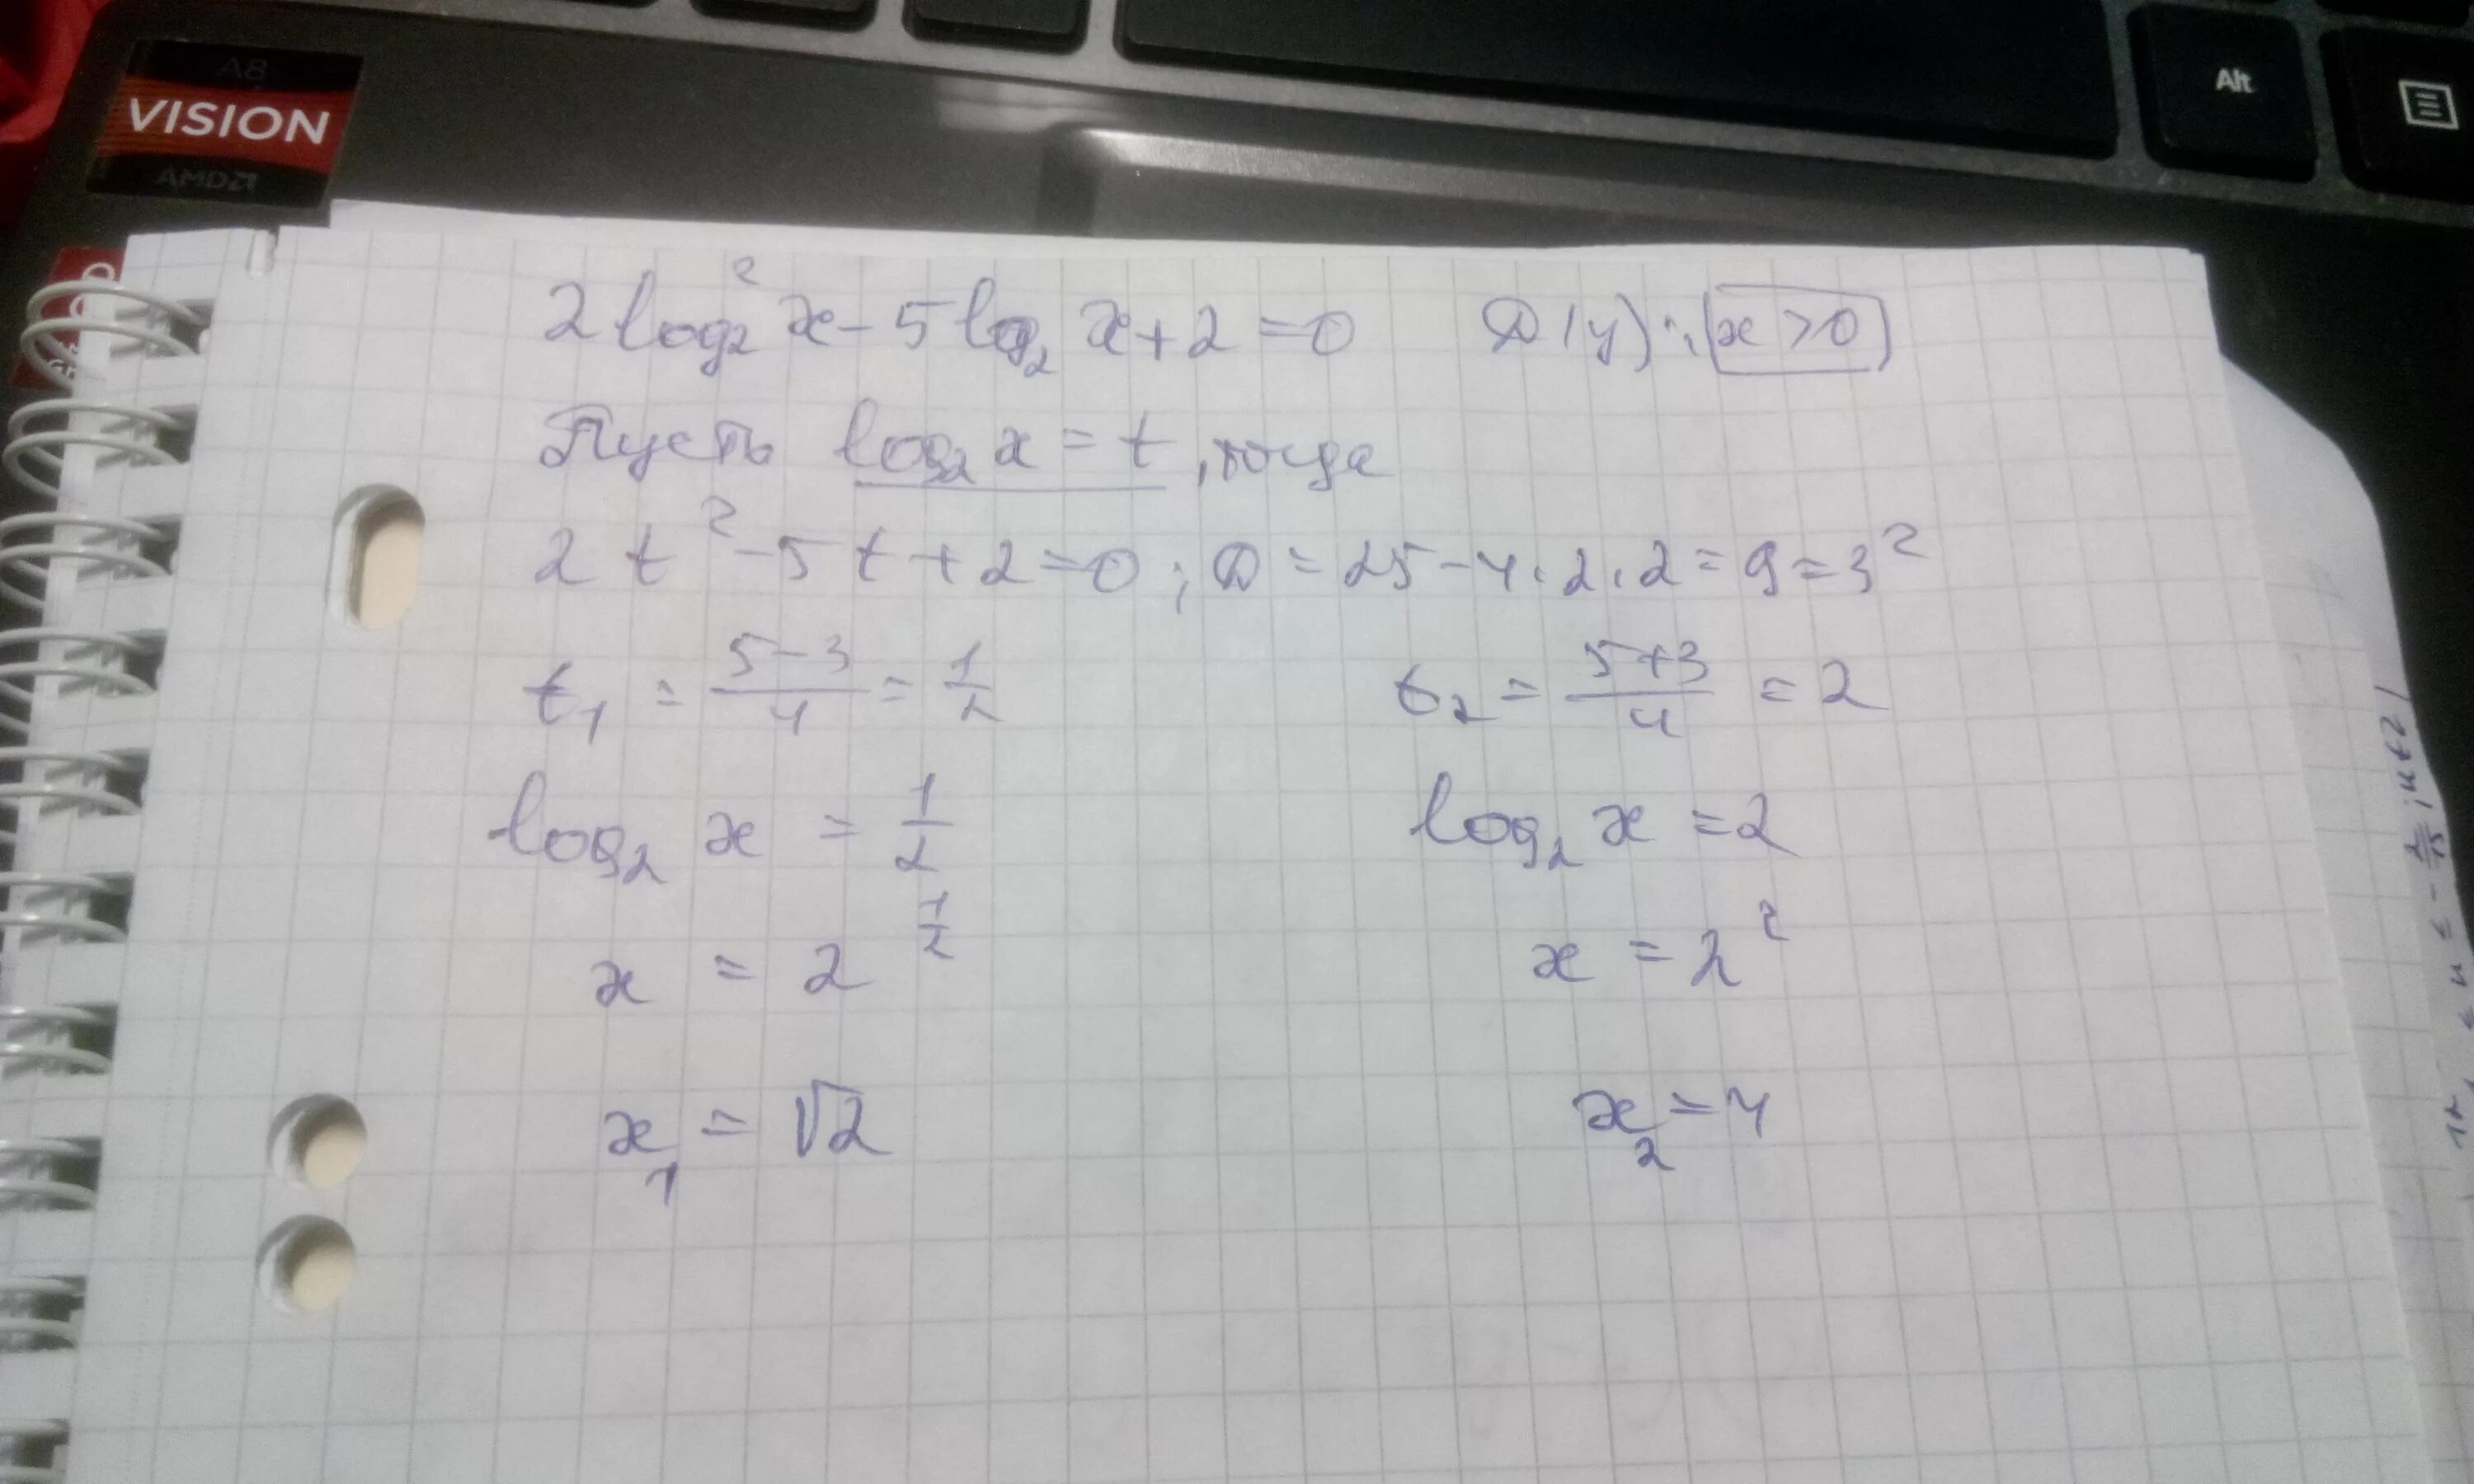 A8
VISION
AMD
Alt
2log₂²x - 5log₂x + 2 = 0    D(y): x > 0
Пусть log₂x = t, тогда
2t² - 5t + 2 = 0; D = 25 - 4·2·2 = 9 = 3²
t₁ = (5-3)/4 = 1/2    t₂ = (5+3)/4 = 2
log₂x = 1/2    log₂x = 2
x = 2^(1/2)    x = 2²
x₁ = √2    x₂ = 4